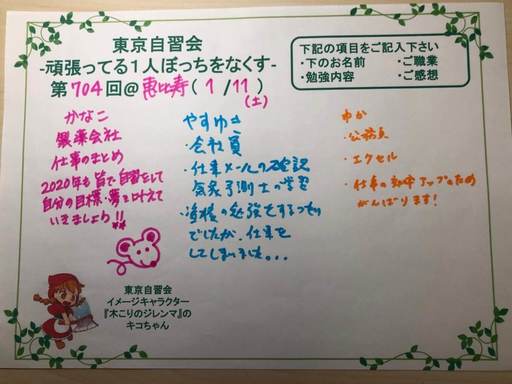 東京自習会
-頑張ってる1人ぼっちをなくす-
第704回@恵比寿(1/11)
(土)
下記の項目をご記入下さい
・下のお名前 ・ご職業
・勉強内容 ・ご感想
かなこ
製薬会社
仕事のまとめ
2020年も皆で自習をして
自分の目標・夢を叶えて
いきましょう!!
やすゆき
・会社員
・仕事メールの確認
気象予測士の学習
・資格の勉強をするつもり
でしたが、仕事を
してしまいました。。。
ゆか
・公務員
・エクセル
・仕事の効率アップのため
がんばります!
東京自習会
イメージキャラクター
『木こりのジレンマ』の
キコちゃん